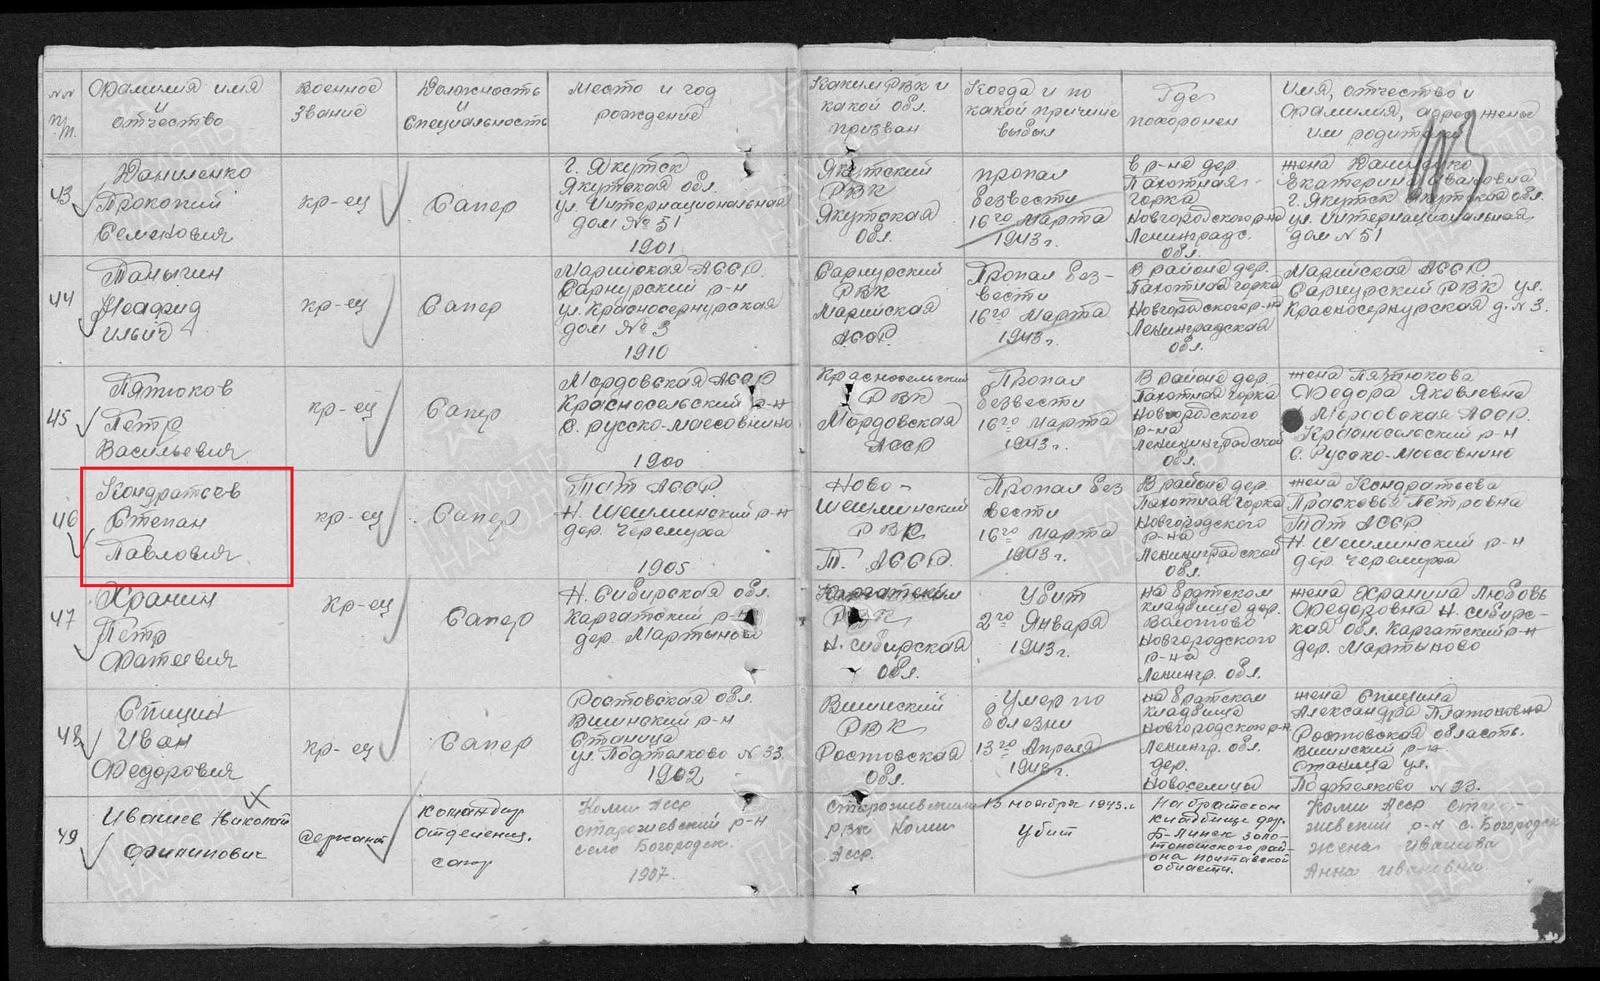 №№ п/п.
Фамилия имя и отчество
Военное звание
Должность и специальность
Место и год рождения
Каким РВК и какой обл. призван
Когда и по какой причине выбыл
Где похоронен
Имя, отчество и фамилия, адрес жены или родителей
43
Даниленко
Прокопий
Семенович
кр-ец
Сапер
г. Якутск
Якутская обл.
ул. Интернациональная
дом № 51
1901
Якутский
РВК
Якутская
обл.
пропал
безвести
16го марта
1943 г.
в р-на дер.
Пахотная-
горка
Новгородского р-на
Ленинградс.
обл.
жена Даниленко
Екатерина Ивановна
г. Якутск Якутская обл.
ул. Интернациональная
дом N 51
44
Таныгин
Ильич
кр-ец
Сапер
Марийская АССР.
Сернурский р-н
ул. Красносернурская
дом № 3
1910
Сернурский
РВК
Марийская
АССР.
Пропал без-
вести
16го марта
1943 г.
В районе дер.
Пахотная горка
Новгородского р-на
Ленинградская
обл.
Марийская АССР.
Сернурский РВК ул.
Красносернурская д. N 3.
45
Пятюков
Петр
Васильевич
кр-ец
Сапер
Мордовская АССР
Красносельский р-н
с. Русско-Маесовнино
1900
Красносельский
РВК
Мордовская
АССР
Пропал
безвести
16го марта
1943 г.
В районе дер.
Пахотная горка
Новгородского
р-на
Ленинградской
обл.
жена Пязтюкова
Федора Яковлевна
Мордовская АССР.
Красносельский р-н
с. Русско-Маесовнино
46
Кондратьев
Степан
Павлович
кр-ец
Сапер
Тат АССР.
Н. Шешминский р-н
дер. Черемуха
1905
Ново-
Шешминский
РВК
Т. АССР.
Пропал без
вести
16го марта
1943 г.
В районе дер.
Пахотная горка
Новгородского
р-на
Ленинградской
обл.
жена Кондратьева
Прасковья Петровна
Тат АССР
Н. Шешминский р-н
дер. Черемуха
47
Хранин
Петр
Фатеевич
кр-ец
Сапер
Н. Сибирская обл.
Каргатский р-н
дер. Мартыново
Каргатский
РВК
Н. Сибирская
обл.
Убит
2го Января
1943 г.
на братском
кладбище дер.
Волотово
Новгородского
р-на
Ленингр. обл.
жена Хранина Любовь
Федоровна Н. Сибирс-
кая обл. Каргатский р-н
дер. Мартыново
48
Спицин
Иван
Федорович
кр-ец
Сапер
Ростовская обл.
Вишинский р-н
Станица
ул. Подтелково N 33.
1902
Вишинский
РВК
Ростовская
обл.
Умер по
болезни
13го Апреля
1943 г.
на братском
кладбище
Новгородского р-н
Ленингр. обл.
дер.
Новоселицы
жена Спицина
Александра Платоновна
Ростовская область.
Вишинский р-н.
Станица ул.
Подтелково N 33.
49
Ивашев Николай
Филипович
Сержант
Командир
отделения.
сапер
Коми Асср
сторожевский р-н
село Богородск.
1907.
Сторожевским
РВК Коми
Асср.
13 ноября 1943. г
Убит
На братском
кладбище дер.
золо-
тоношского рай-
она полтавской
области.
Коми Асср сторо-
жевский р-н с. Богородск
жена Ивашова
Анна Ивановна
ПАМЯТЬ НАРОДА